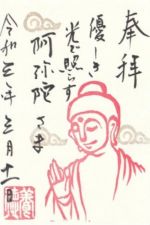 奉拝
優しき
光で照らす
阿弥陀さま
令和三年三月十一日